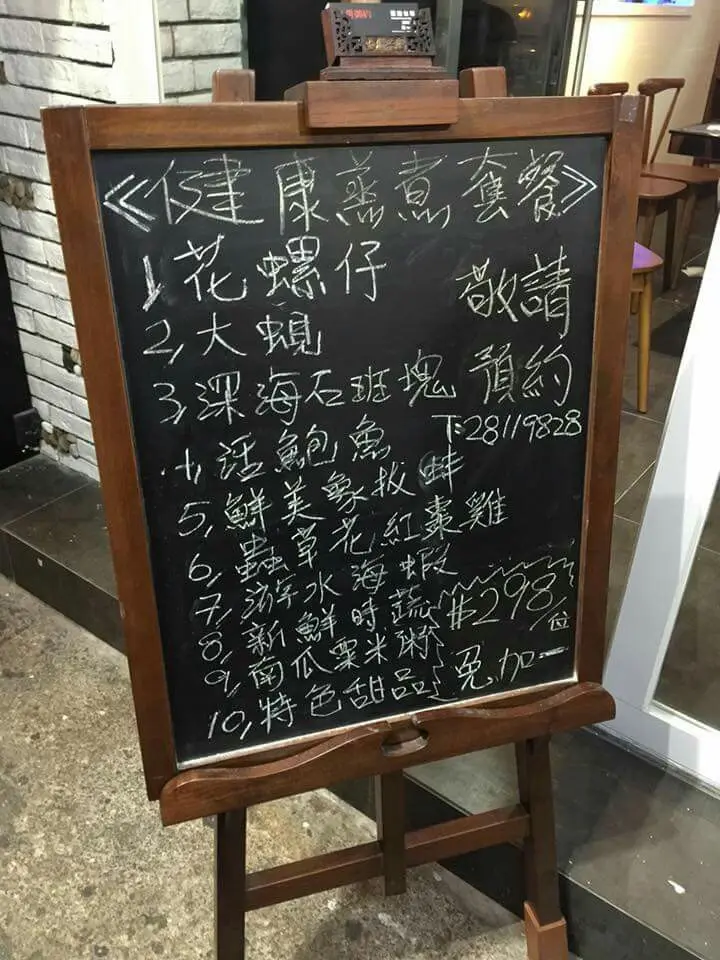 ≪健康蒸煮套餐≫
1, 花螺仔
2, 大蜆
3, 深海石班塊
4, 活鮑魚
5, 鮮美象拔蚌
6, 蟲草花紅棗雞
7, 游水海蝦
8, 新鮮時蔬
9, 南瓜粟米粥
10, 特色甜品
敬請
預約
T:28119828
$298/位
免加一